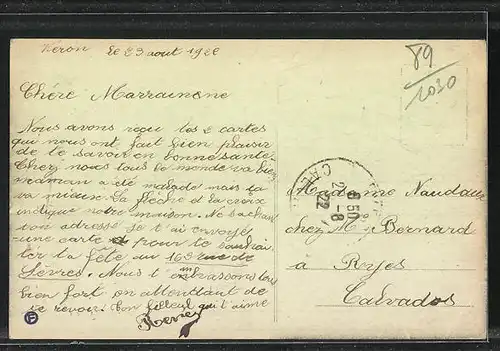 Véron le 23 aout 1922
Chère Marrainne
Nous avons reçu tes 2 cartes
qui nous ont fait bien plaisir
de te savoir en bonne santé.
Chez nous tous le monde va bien
maman a été malade mais ta
va mieux. La flèche et la croix
indique notre maison. Ne sachant
ton adresse je t'ai envoyé
une carte pour te souhai
ter la fête au 16 rue de
Sèvres. Nous t'embrassons tous
bien fort en attendant de
te revoir. ton filleul qui t'aime
René
89
1030
CAE
6 50
23 -8
22
Madame Naudduz
chez M. Bernard
à Ryes
Calvados